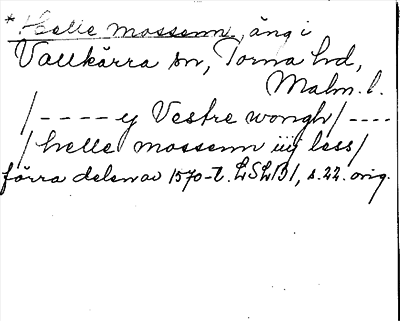 * Helle mossenn, äng i
Vallkärra sn, Torna hd,
Malm. l.
/ - - - - ey Vestre wongh / - - - -
/ helle mossenn iiij less /
förra delen av 1570-t. LSLB 1, s. 22. orig.